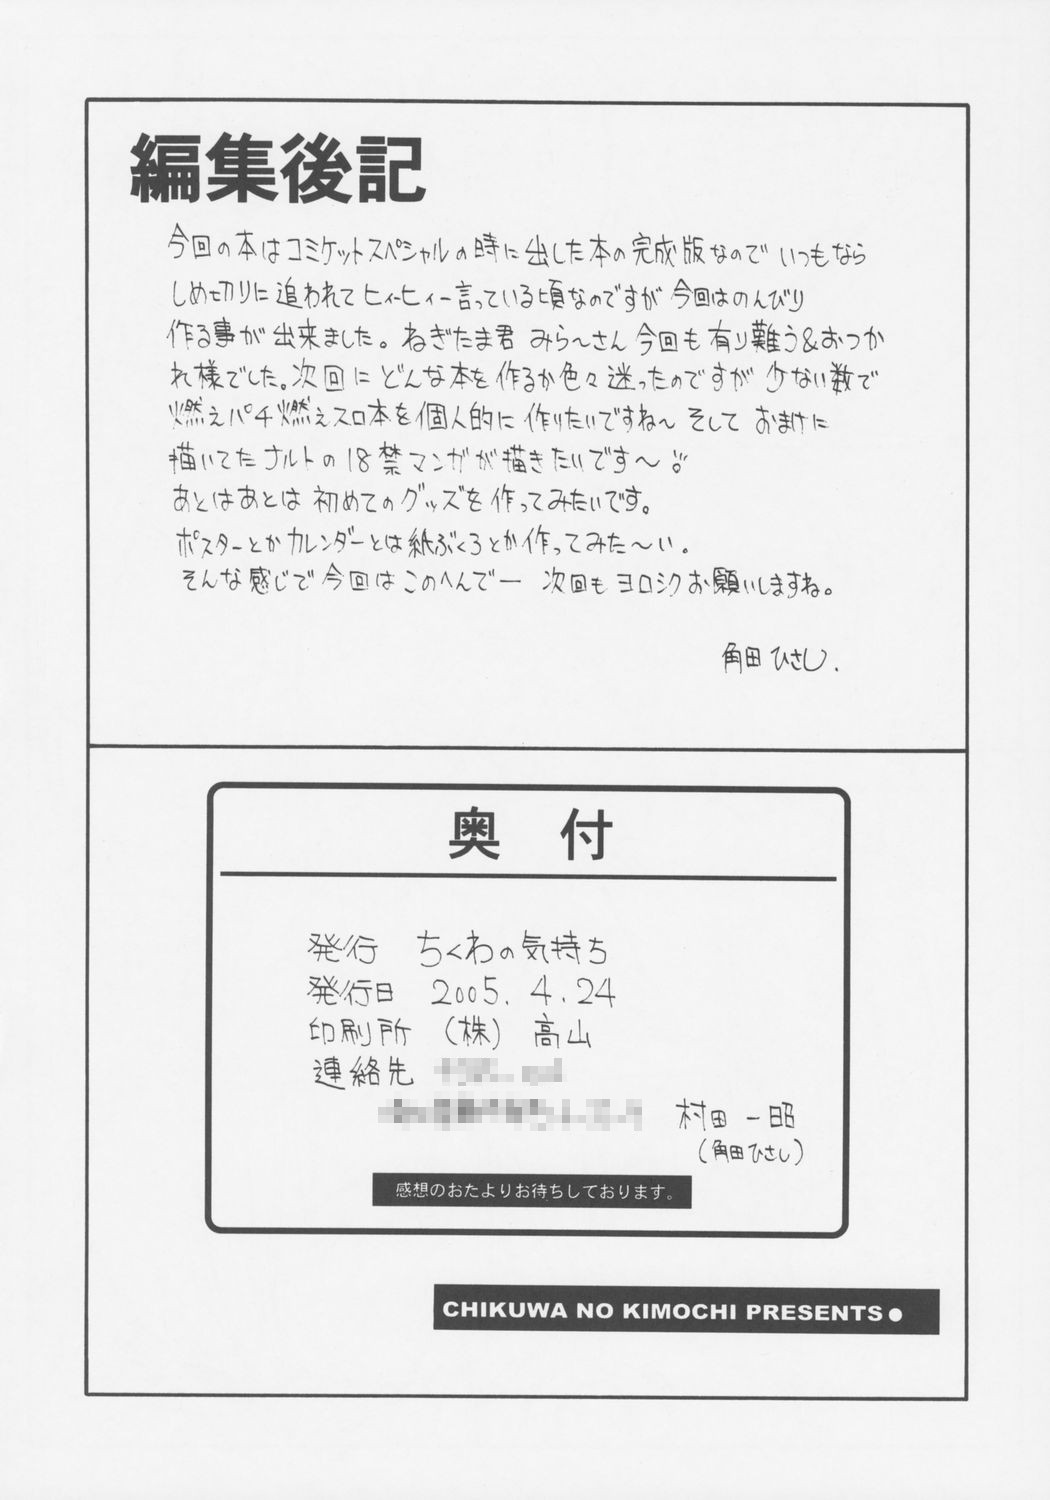 編集後記
今回の本はコミケットスペシャルの時に出した本の完成版なので いつもなら
しめ切りに追われてヒィーヒィー言っている頃なのですが 今回はのんびり
作る事が出来ました。ねぎたま君 みら〜さん 今回も有り難う&おつか
れ様でした。次回に どんな本を作るか色々迷ったのですが 少ない数で
燃えパチ燃えスロ本を個人的に作りたいですね〜 そして おまけに
描いてたナルトの18禁マンガが描きたいです〜
あとはあとは 初めてのグッズを作ってみたいです。
ポスターとかカレンダーとは紙ぶくろとか作ってみた〜い。
そんな感じで今回はこのへんでー 次回もヨロシクお願いしますね。
角田ひさし.
奥 付
発行 ちくわの気持ち
発行日 2005.4.24
印刷所 (株) 高山
連絡先
村田 一昭
(角田ひさし)
感想のおたよりお待ちしております。
CHIKUWA NO KIMOCHI PRESENTS●